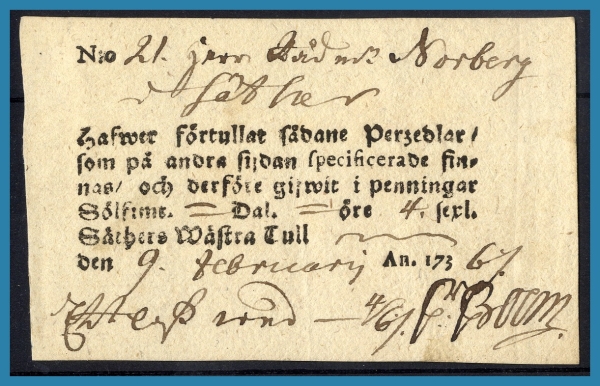 N:o 21. Herr Rådm: Norberg
i Säther
Hafwer förtullat sådane Perzedlar/
som på andra sijdan specificerade fin-
nas/ och derföre gifwit i penningar
Sölfwmt. = Dal. = öre 4. sexl.
Säthers Wästra Tull
den 9. Februarij An. 173 67.
4/67. Boom.